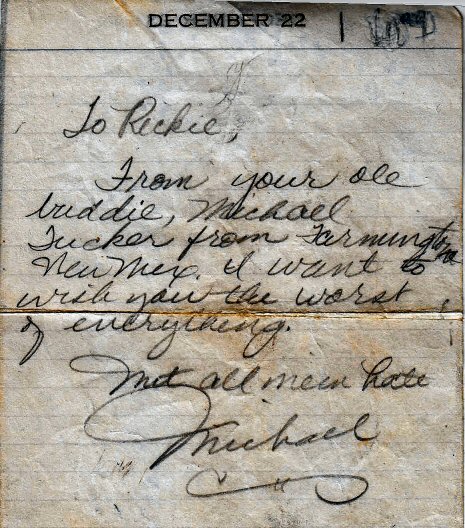 DECEMBER 22
To Reckie,
From your ole
buddie, Michael
Tucker from Farmington
New Mex. I want to
wish you the worst
of everything.
all mein hate
Michael